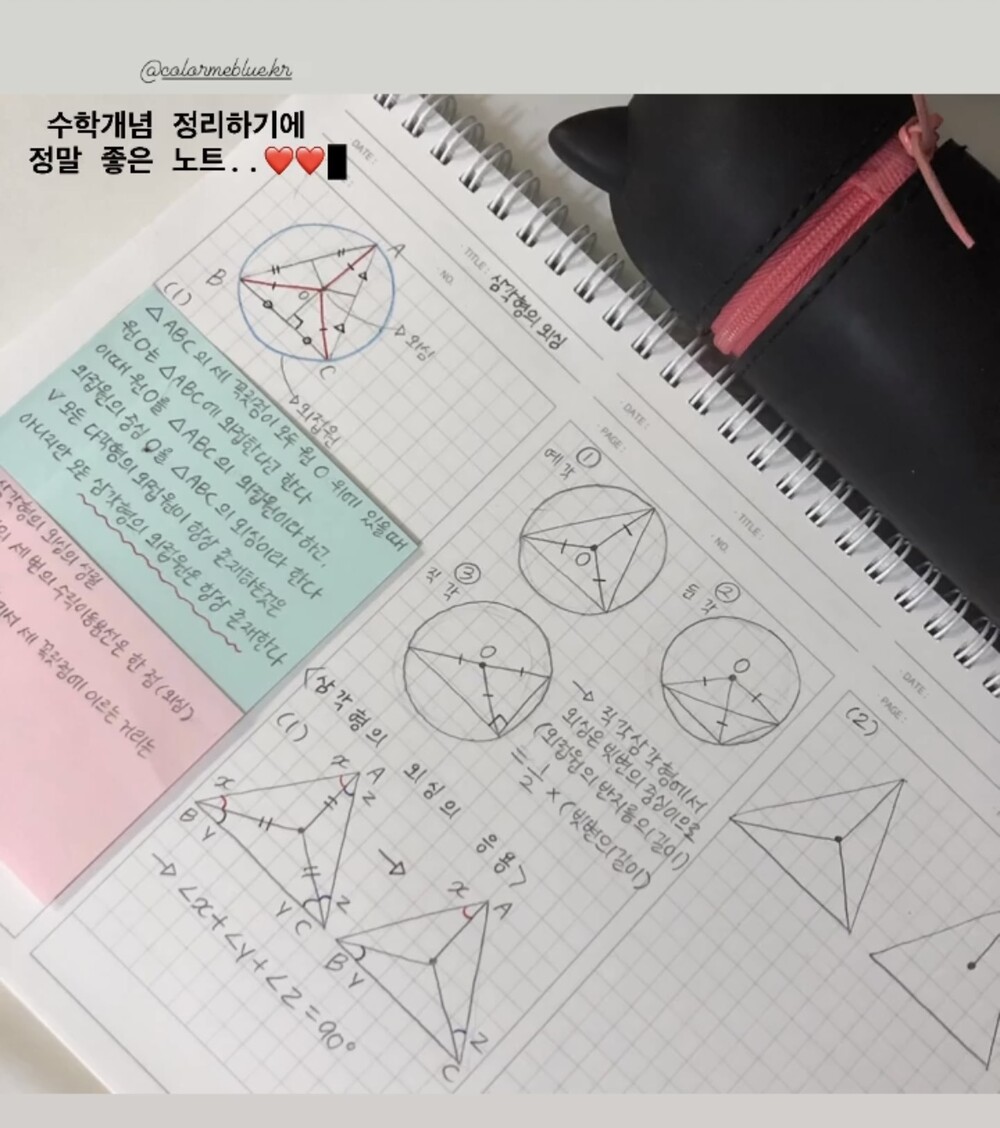 @colormeblue.kr
수학개념 정리하기에
정말 좋은 노트..❤️❤️
DATE :
TITLE : 삼각형의 외심
NO.
A
B
O
C
(1)
▷외심
▷외접원
△ABC의 세 꼭짓점이 모두 원 O 위에 있을때
원O는 △ABC에 외접한다고 한다
이때 원O를 △ABC의 외접원이라 하고,
외접원의 중심 O를 △ABC의 외심이라 한다
V 모든 다각형의 외접원이 항상 존재하는것은
아니지만 모든 삼각형의 외접원은 항상 존재한다
삼각형의 외심의 성질
의 세 변의 수직이등분선은 한 점(외심)
에서 세 꼭짓점에 이르는 거리는
DATE :
PAGE :
TITLE :
NO.
①
예각
O
②
둔각
O
③
직각
O
→ 직각삼각형에서
외심은 빗변의 중심이므로
(외접원의 반지름의 길이)
= 1/2 × (빗변의 길이)
<삼각형의 외심의 응용>
(1)
x A
x z
B Y
Y C z
→
x A
B Y
z
C
→ ∠x+∠y+∠z=90°
DATE :
PAGE :
(2)